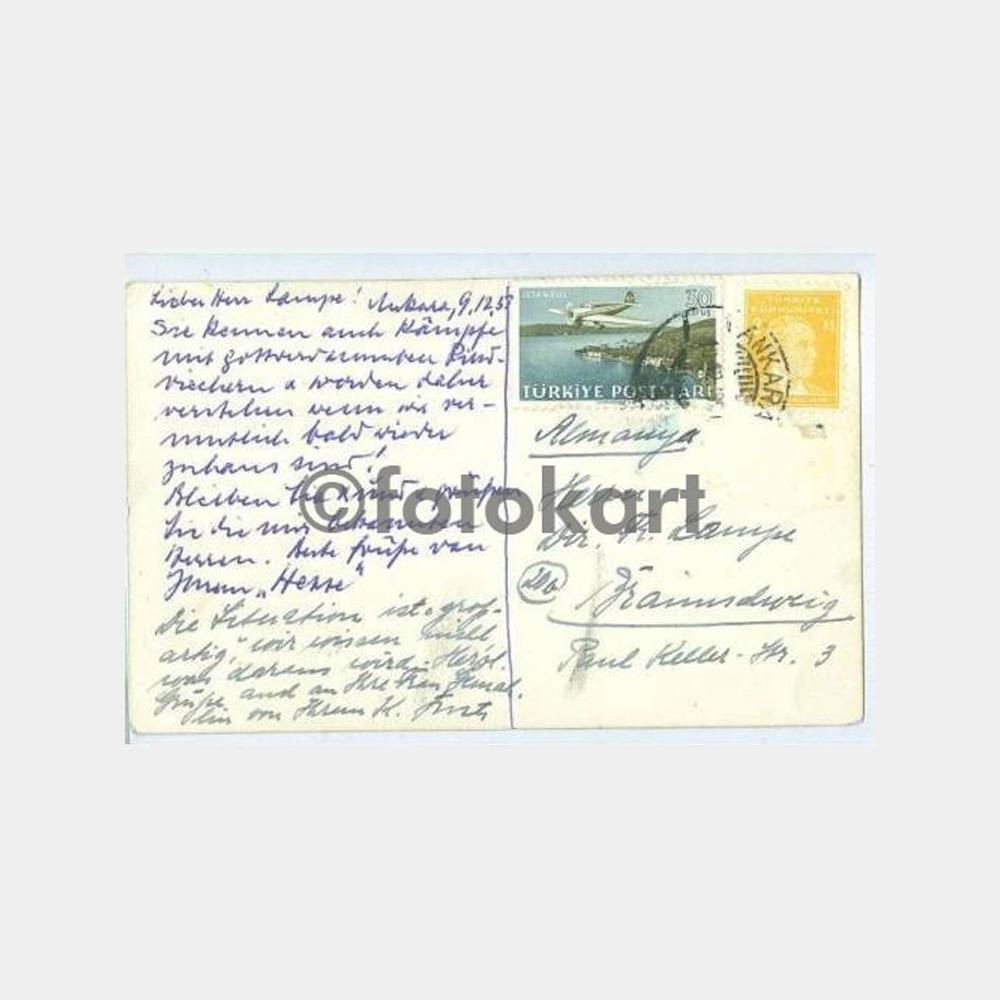 Lieber Herr Lampe! Ankara, 9.12.5
Sie kennen auch Kämpfe
mit gottverdammten Rind-
viechern u werden daher
verstehen wenn wir ver-
mutlich bald wieder
zuhaus sind!
Bleiben Sie grüßen
Sie die mir bekannten
Herren. Beste Grüße von
Ihrem „Hesse"
Die Situation ist „groß-
artig," wir wissen
was daraus wird. Herzl.
Grüße auch an Ihre
von Ihrem K.
ISTANBUL
30
TÜRKİYE POSTALARI
TÜRKİYE
CUMHURİYETİ
ANKARA
Almanya
Herrn
Dir. Fr. Lampe
20b
Braunschweig
Paul Keller-Str. 3
©fotokart